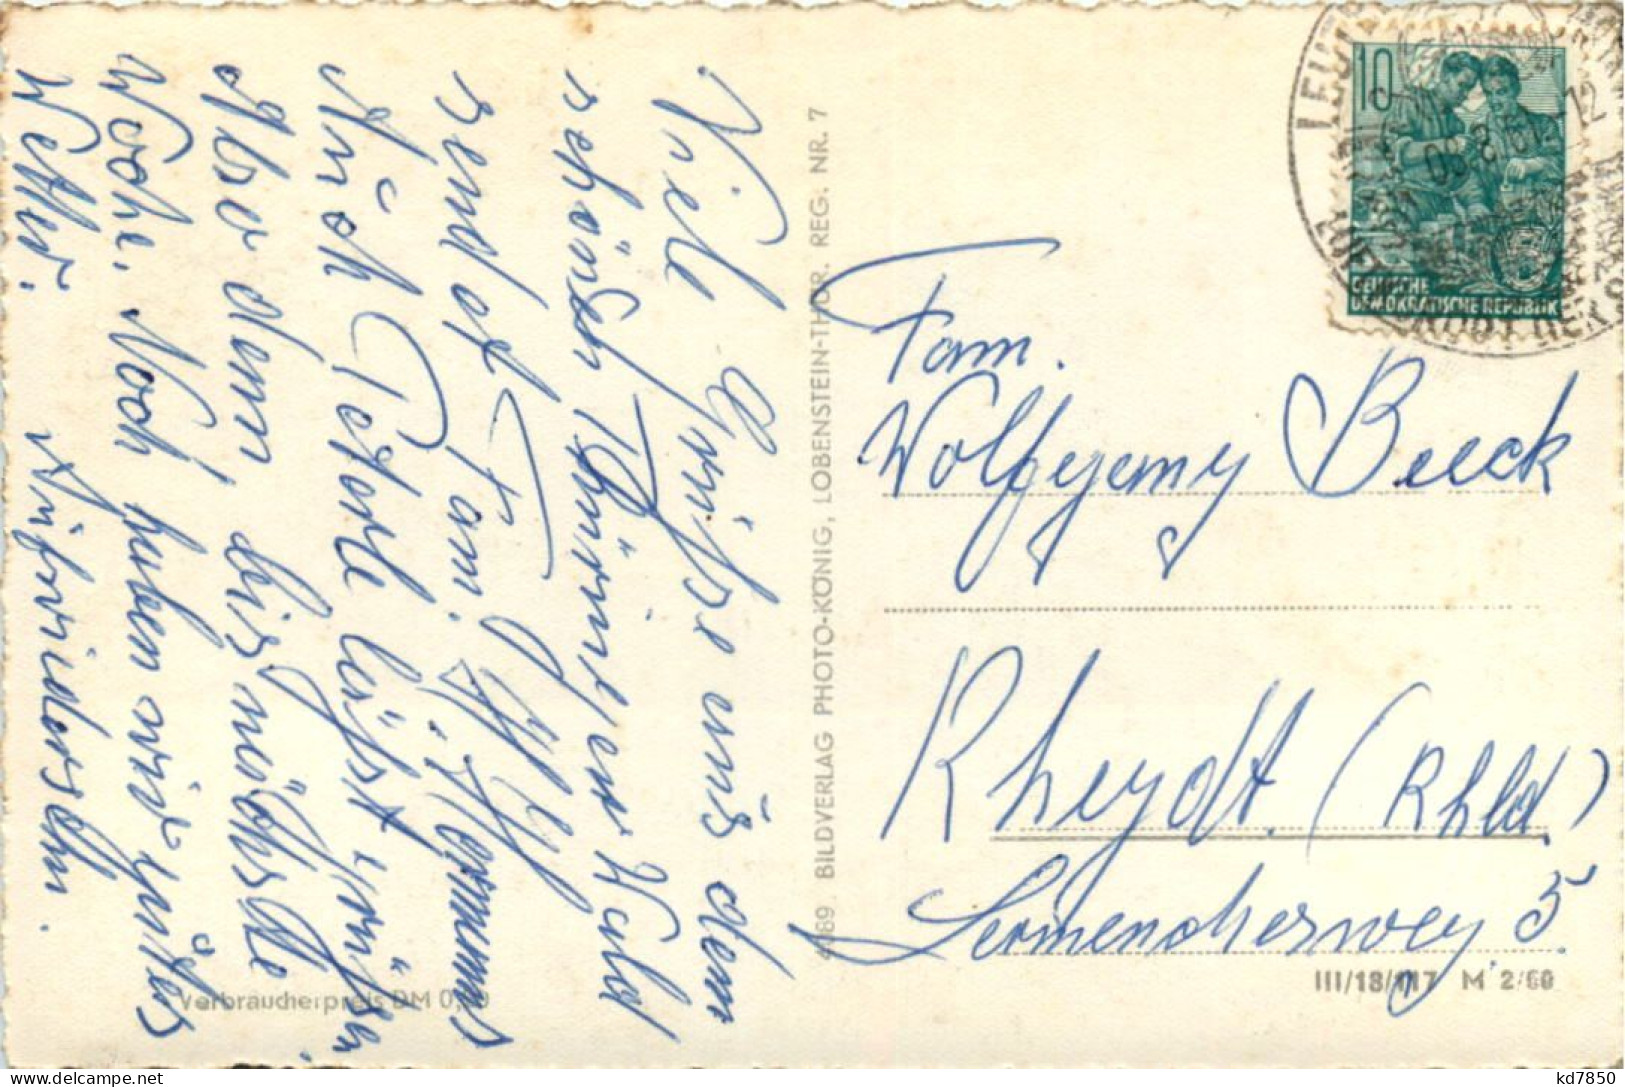 Viele Grüße aus dem
schönen Thüringer Wald
sendet Fam. H. Hommes
Auch Tetole läßt grüßen
Also dem bis nächste
Woche. Noch haben wir gutes
Wetter. Aufwiedersehn.
4089 BILDVERLAG PHOTO-KÖNIG, LOBENSTEIN-THÜR. REG. NR. 7
Verbraucherpreis DM 0,20
10
DEUTSCHE
DEMOKRATISCHE REPUBLIK
Fam.
Wolfgang Beeck
Rheydt. (Rhld.)
5.
III/18/117 M 2/60
kd7850